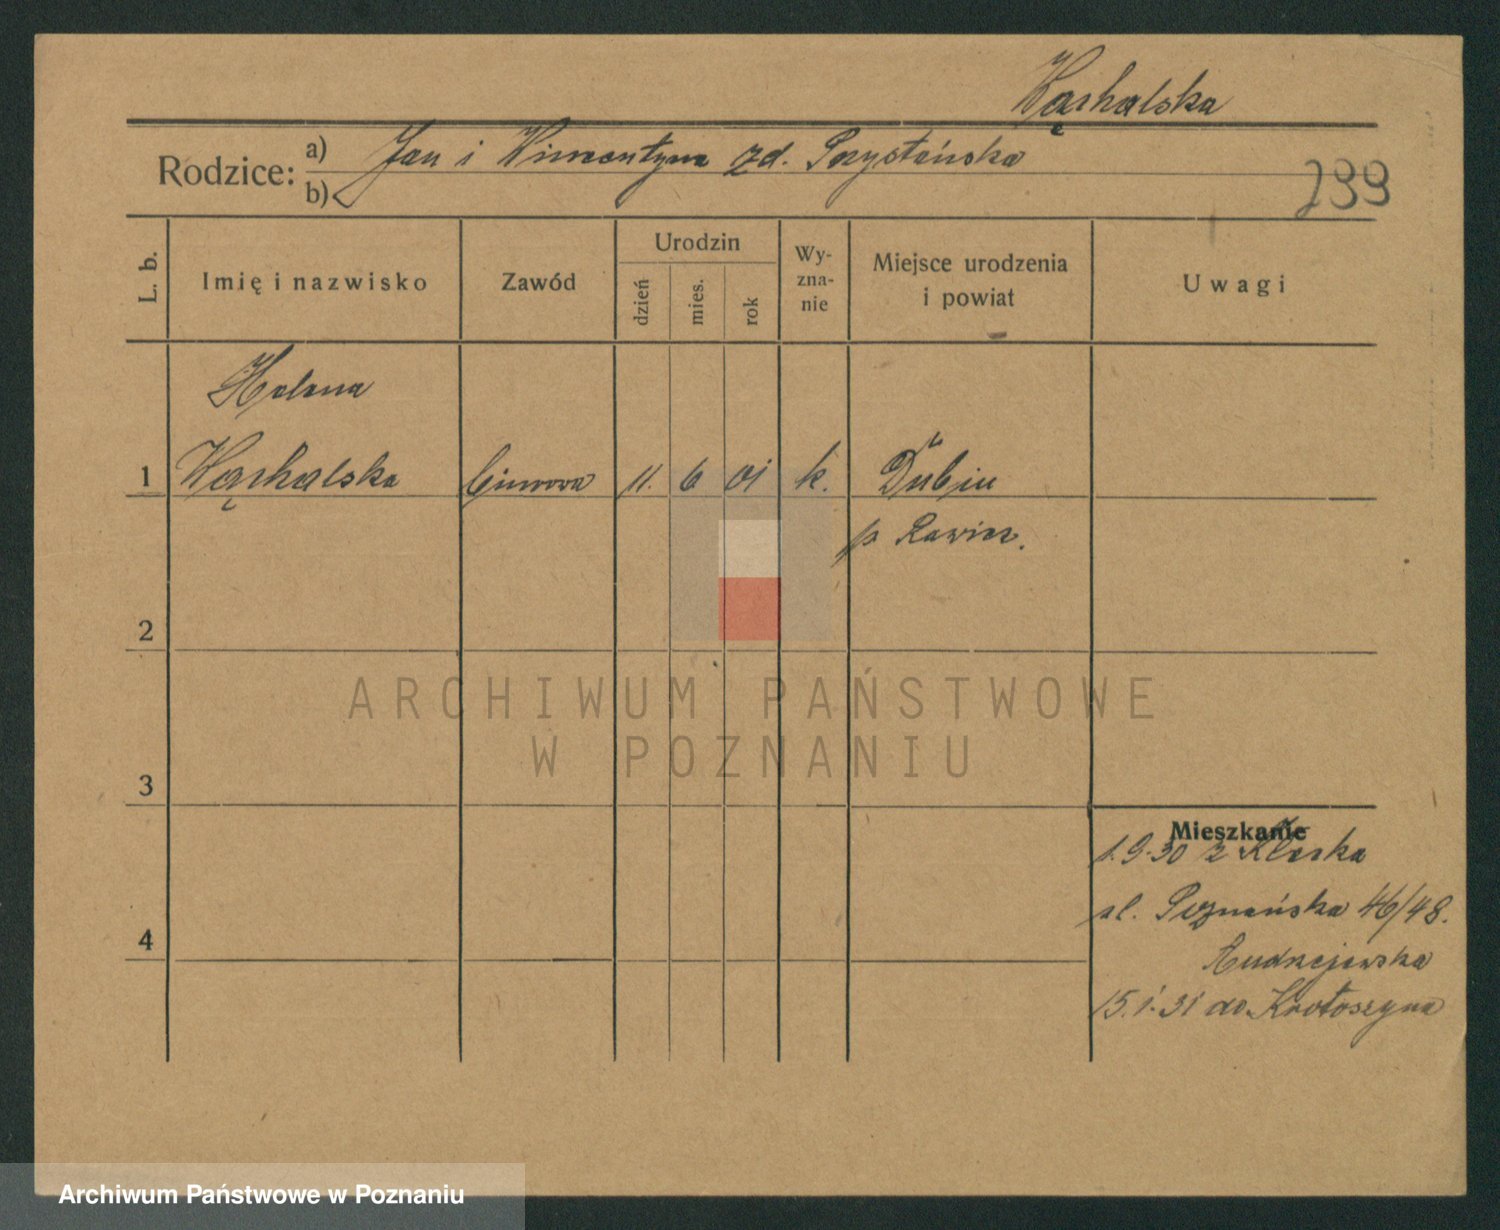 Wąchalska
Rodzice: a) Jan i Wincentyna zd. Przystańska
b)
299
L. b.
Imię i nazwisko
Zawód
Urodzin
dzień
mies.
rok
Wy-
zna-
nie
Miejsce urodzenia
i powiat
Uwagi
Helena
1 Wąchalska 11. 6 01 k. Dubin
p Rawicz.
2
ARCHIWUM PAŃSTWOWE
W POZNANIU
3
Mieszkanie
1.9.30 z Kłecka
ul. Poznańska 46/48.
4
Andrzejewska
15.1.31 do Krotoszyna
Archiwum Państwowe w Poznaniu